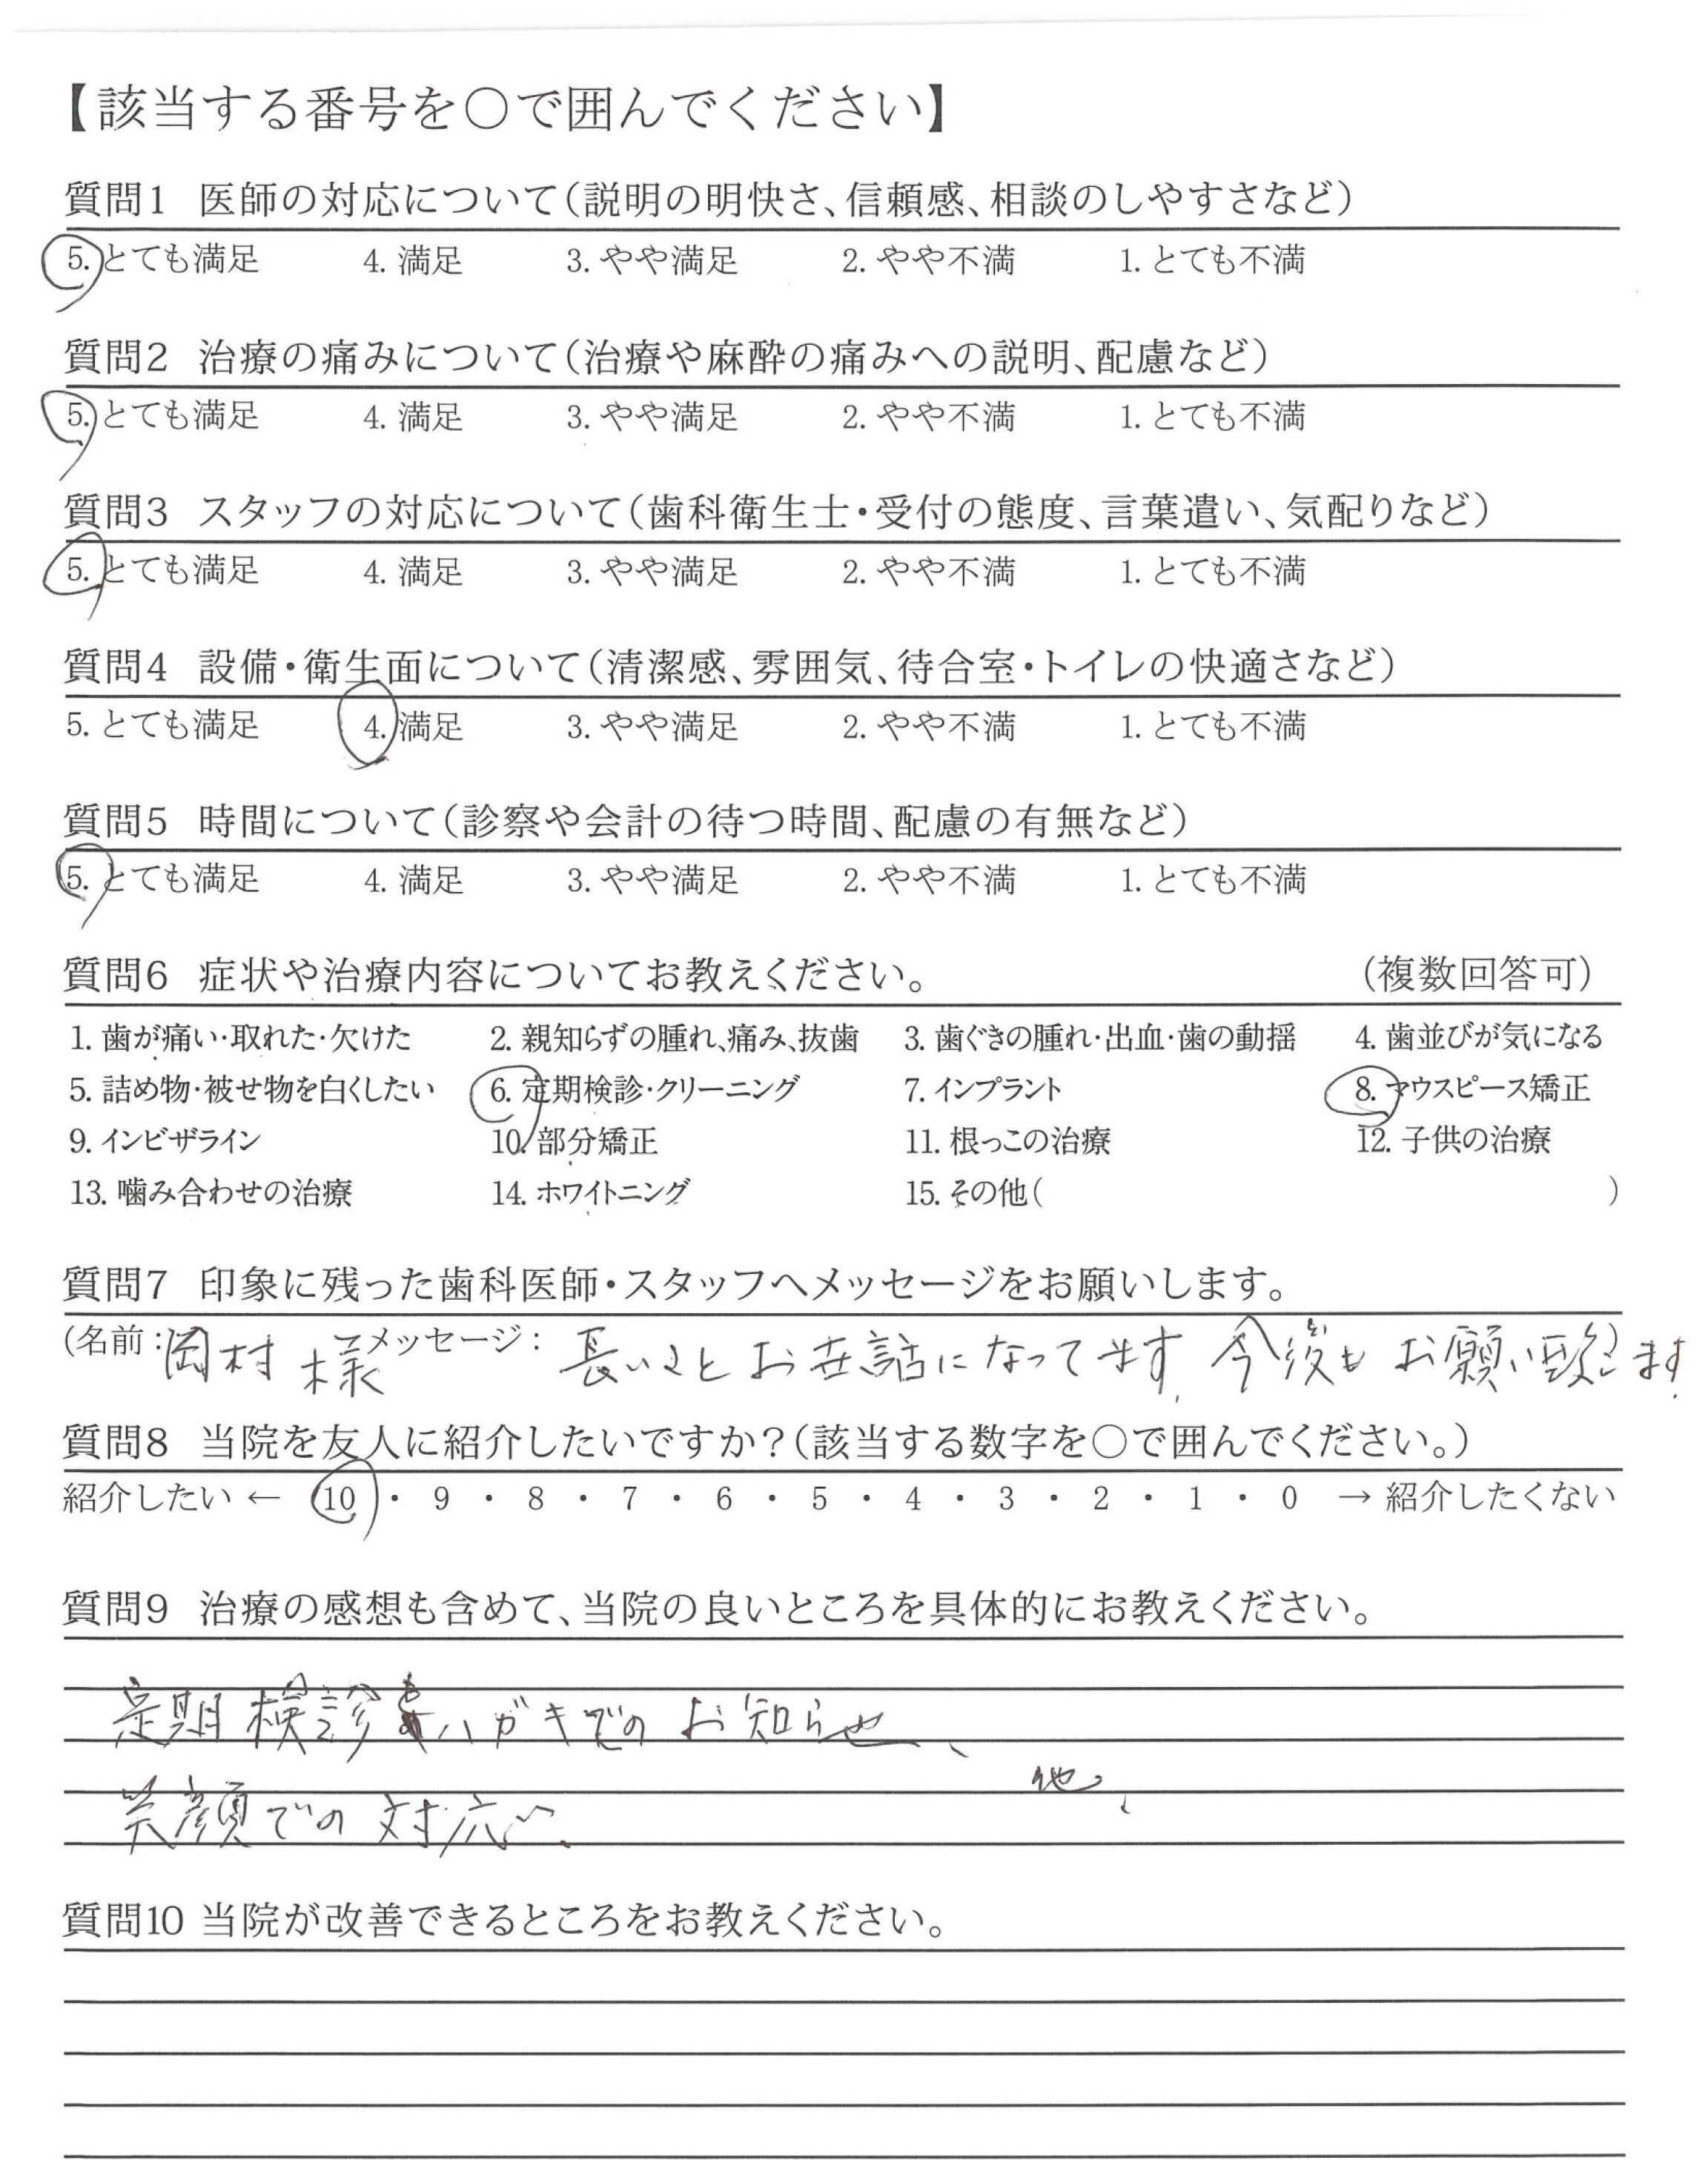 【該当する番号を○で囲んでください】
質問1 医師の対応について(説明の明快さ、信頼感、相談のしやすさなど)
5. とても満足 4. 満足 3. やや満足 2. やや不満 1. とても不満
質問2 治療の痛みについて(治療や麻酔の痛みへの説明、配慮など)
5. とても満足 4. 満足 3. やや満足 2. やや不満 1. とても不満
質問3 スタッフの対応について(歯科衛生士・受付の態度、言葉遣い、気配りなど)
5. とても満足 4. 満足 3. やや満足 2. やや不満 1. とても不満
質問4 設備・衛生面について(清潔感、雰囲気、待合室・トイレの快適さなど)
5. とても満足 4. 満足 3. やや満足 2. やや不満 1. とても不満
質問5 時間について(診察や会計の待つ時間、配慮の有無など)
5. とても満足 4. 満足 3. やや満足 2. やや不満 1. とても不満
質問6 症状や治療内容についてお教えください。 (複数回答可)
1. 歯が痛い・取れた・欠けた 2. 親知らずの腫れ、痛み、抜歯 3. 歯ぐきの腫れ・出血・歯の動揺 4. 歯並びが気になる
5. 詰め物・被せ物を白くしたい 6. 定期検診・クリーニング 7. インプラント 8. マウスピース矯正
9. インビザライン 10. 部分矯正 11. 根っこの治療 12. 子供の治療
13. 噛み合わせの治療 14. ホワイトニング 15. その他( )
質問7 印象に残った歯科医師・スタッフへメッセージをお願いします。
(名前:岡村様 メッセージ: 長いことお世話になってます、今後もお願い致します。)
質問8 当院を友人に紹介したいですか?(該当する数字を○で囲んでください。)
紹介したい ← 10 ・ 9 ・ 8 ・ 7 ・ 6 ・ 5 ・ 4 ・ 3 ・ 2 ・ 1 ・ 0 → 紹介したくない
質問9 治療の感想も含めて、当院の良いところを具体的にお教えください。
定期検診もハガキでのお知らせ、
笑顔での対応、 他、
質問10 当院が改善できるところをお教えください。